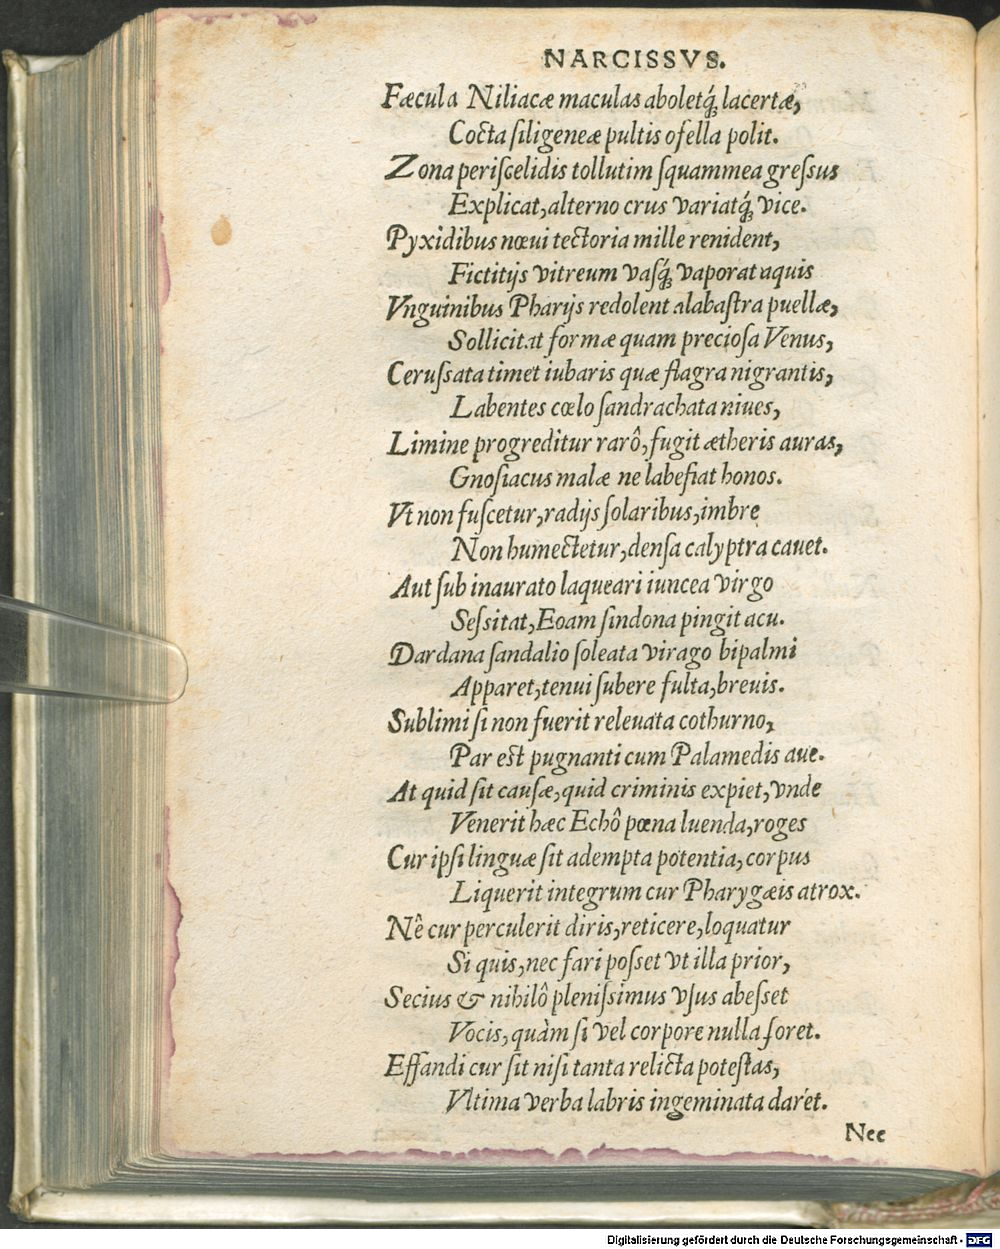 NARCISSVS.
Fæcula Niliacæ maculas aboletq́; lacertæ,
Cocta siligeneæ pultis ofella polit.
Zona periscelidis tollutim squammea gressus
Explicat, alterno crus variatq́; vice.
Pyxidibus nœui tectoria mille renident,
Fictitijs vitreum vasq́; vaporat aquis
Vnguinibus Pharijs redolent alabastra puellæ,
Sollicitat formæ quam preciosa Venus,
Cerussata timet iubaris quæ flagra nigrantis,
Labentes cœlo sandrachata niues,
Limine progreditur rarô, fugit ætheris auras,
Gnosiacus malæ ne labefiat honos.
Vt non fuscetur, radijs solaribus, imbre
Non humectetur, densa calyptra cauet.
Aut sub inaurato laqueari iuncea virgo
Sessitat, Eoam sindona pingit acu.
Dardana sandalio soleata virago bipalmi
Apparet, tenui subere fulta, breuis.
Sublimi si non fuerit releuata cothurno,
Par est pugnanti cum Palamedis aue.
At quid sit causæ, quid criminis expiet, vnde
Venerit hæc Echô pœna luenda, roges
Cur ipsi linguæ sit adempta potentia, corpus
Liquerit integrum cur Pharygæis atrox.
Nê cur perculerit diris, reticere, loquatur
Si quis, nec fari posset vt illa prior,
Secius & nihilô plenissimus vsus abesset
Vocis, quàm si vel corpore nulla foret.
Effandi cur sit nisi tanta relicta potestas,
Vltima verba labris ingeminata darét.
Nec
Digitalisierung gefördert durch die Deutsche Forschungsgemeinschaft - DFG